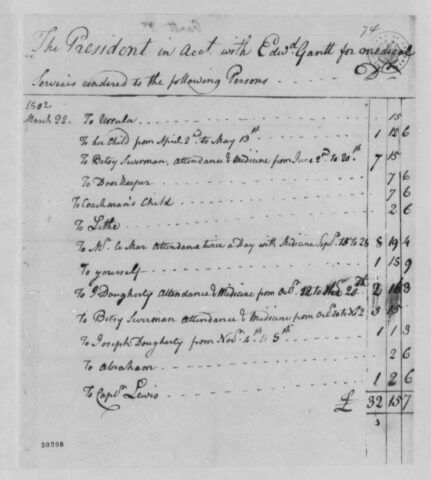 74
The President in Acct. with Edwd. Gantt for medical
Services rendered to the following Persons Dr
1802
March 22. To Ursula 15
To her Child from April 2nd to May 13th 1 12 6
To Betsy Suerman, Attendance & Medicine from June 2nd to 20th 7 15
To Doorkeeper 7 6
To Coachman's Child 7 6
To Lithe 2 6
To Mr. Le Mar Attendance twice a Day with Medicine Sepr. 15 to 28 8 19 4
To yourself 1 15 9
To J Dougherty Attendance & Medicine from Octr. 12 to 20th 2 16 3
To Betsy Suerman Attendance & Medicine from Octr 20 to 2 3 15
To Joseph Dougherty from Novr. 4th to 8th 1 1 3
To Abraham 2 6
To Captn Lewis 1 2 6
£ 32 15 7
20998